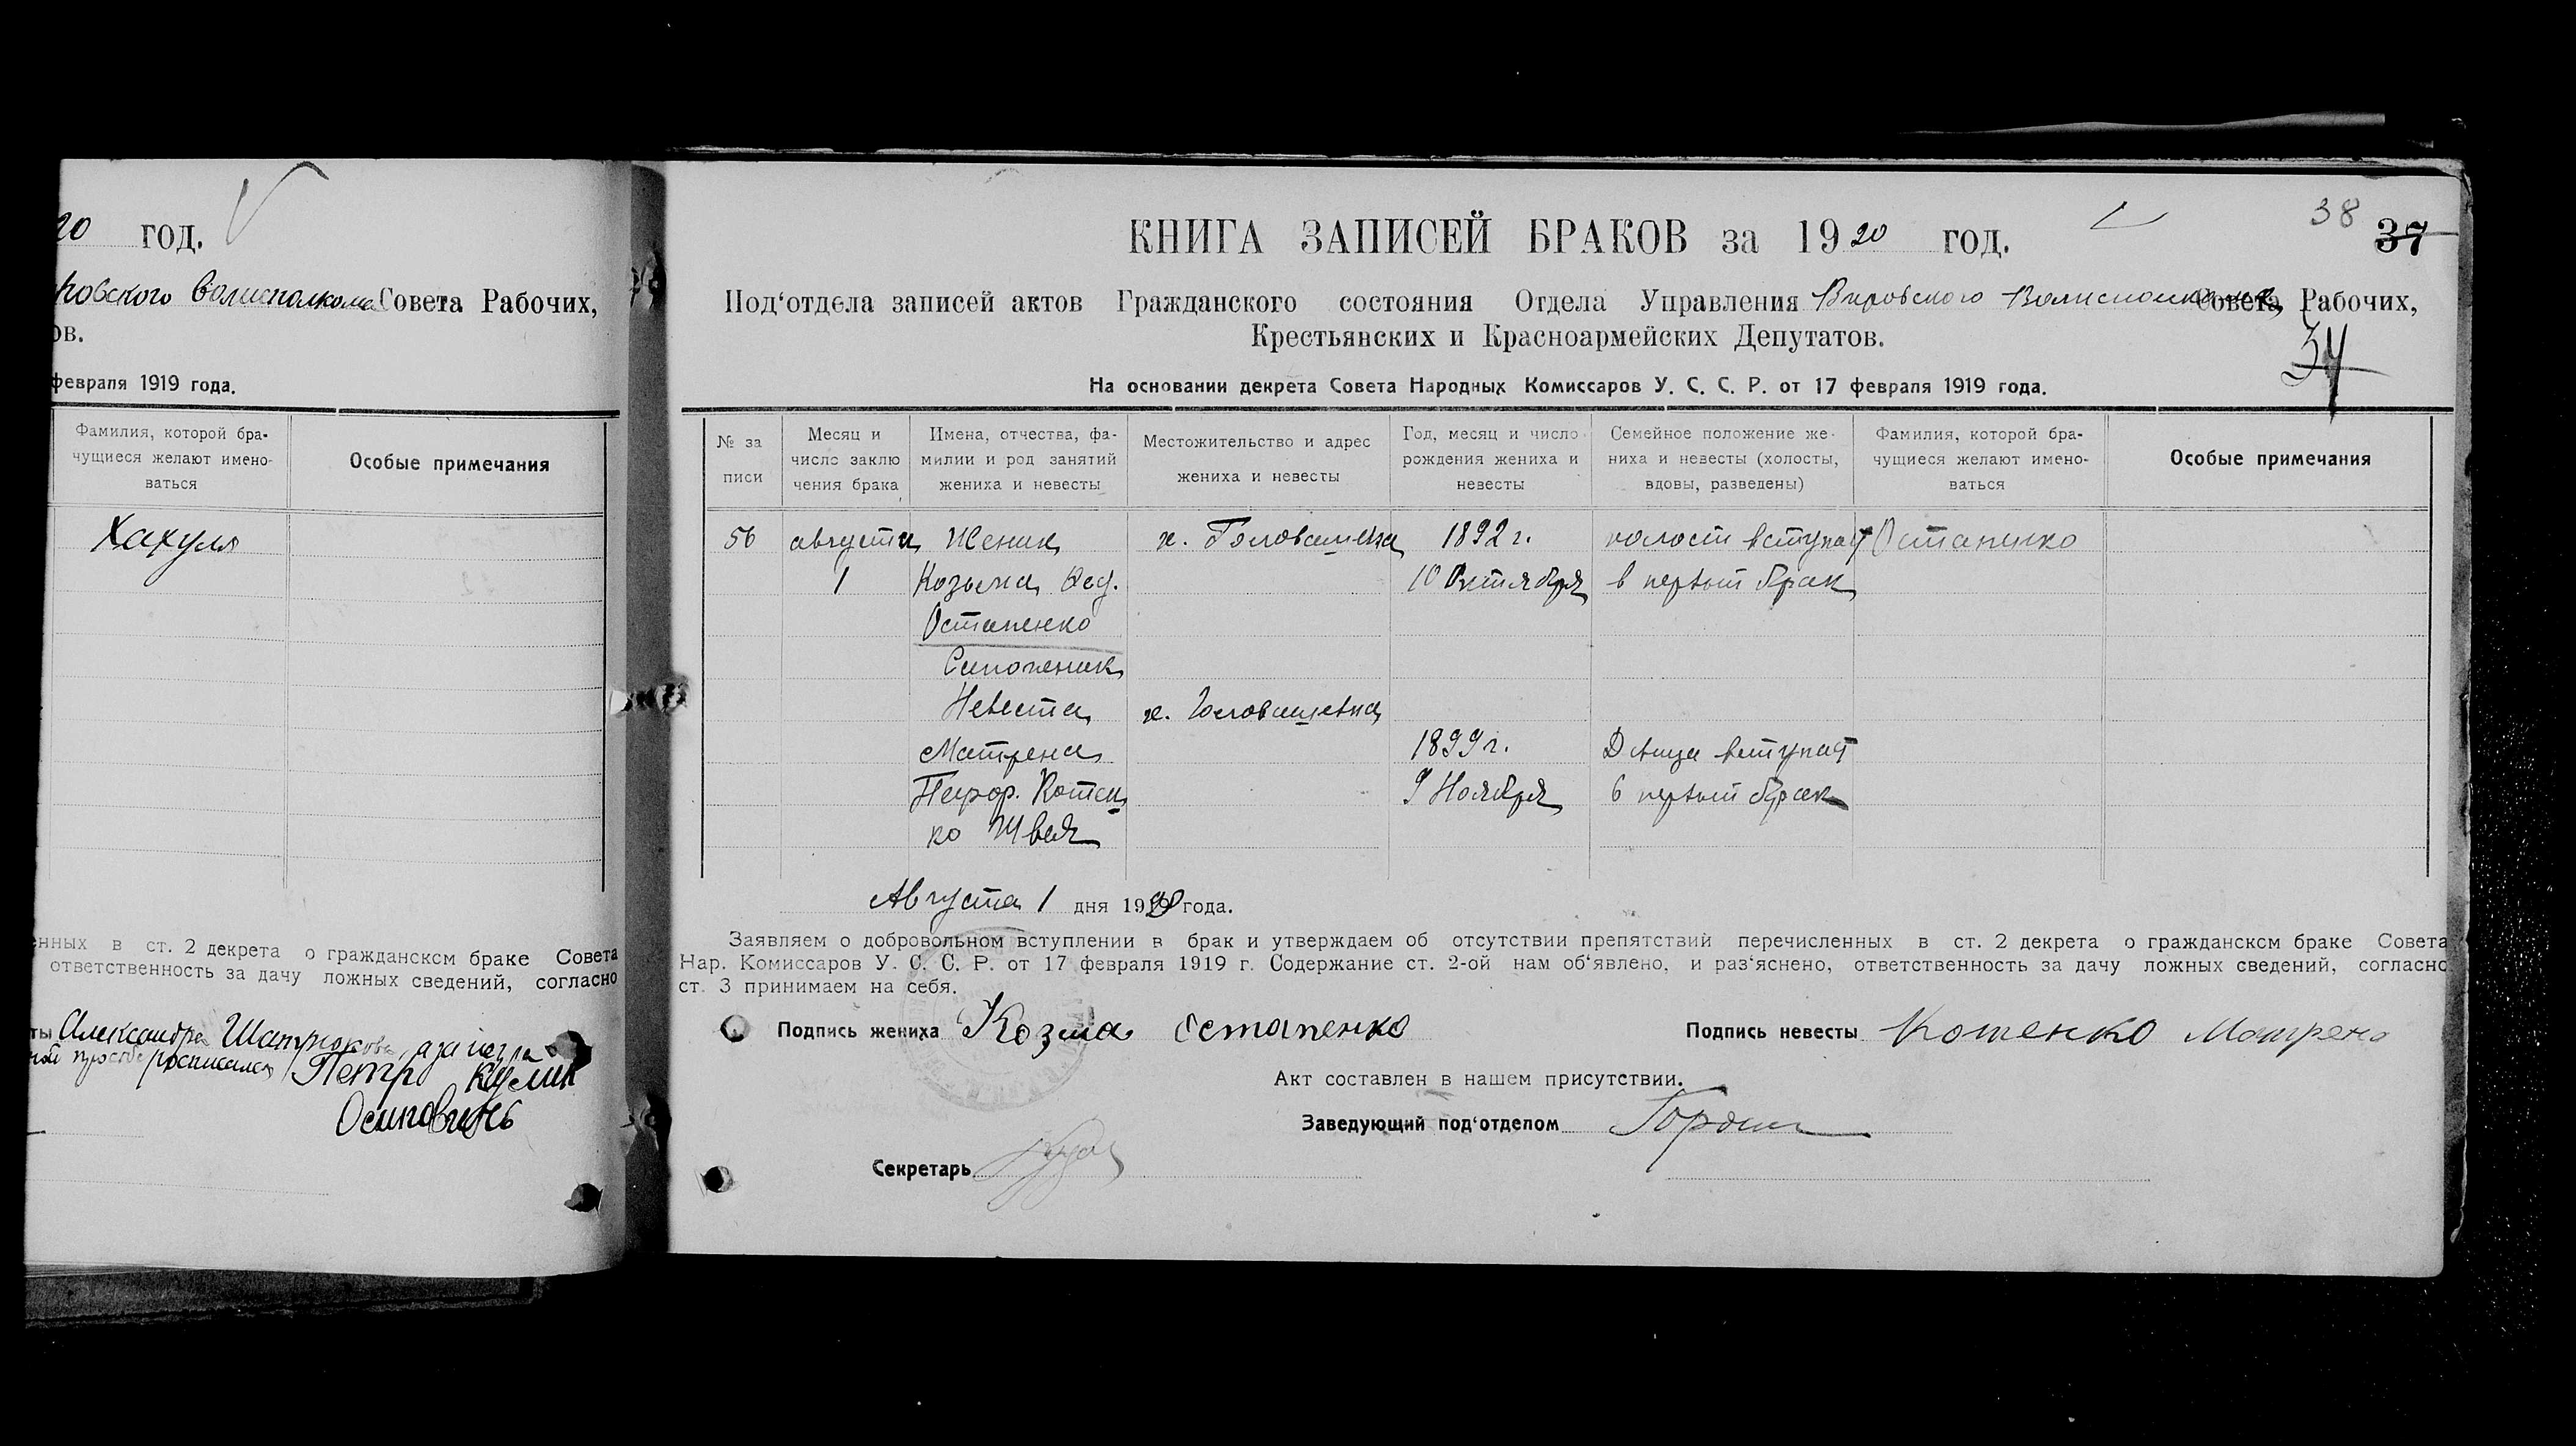 20 год.
ровского волисполкома Совета Рабочих,
ов.
февраля 1919 года.
Фамилия, которой бра-
чущиеся желают имено-
ваться
Особые примечания
Хахуля
енных в ст. 2 декрета о гражданском браке Совета
ответственность за дачу ложных сведений, согласно
ты Александра
росписался Петр Кулик
Осипович
38
37
КНИГА ЗАПИСЕЙ БРАКОВ за 1920 год.
Под‘отдела записей актов Гражданского состояния Отдела Управления Вировского Волисполкома Совета Рабочих,
Крестьянских и Красноармейских Депутатов.
34
На основании декрета Совета Народных Комиссаров У. С. С. Р. от 17 февраля 1919 года.
№ за
писи
Месяц и
число заклю
чения брака
Имена, отчества, фа-
милии и род занятий
жениха и невесты
Местожительство и адрес
жениха и невесты
Год, месяц и число
рождения жениха и
невесты
Семейное положение же-
ниха и невесты (холосты,
вдовы, разведены)
Фамилия, которой бра-
чущиеся желают имено-
ваться
Особые примечания
56 августа Жених х. Головашевка 1892 г. холост вступает Остапенко
1 Козьма Фед. 10 Октября в первый брак
Остапенко
Сапожник
Невеста х. Головашевка
Матрена 1899 г. Девица вступает
Пефор. Котен 9 Ноября в первый брак
ко Швея
Августа 1 дня 1920 года.
Заявляем о добровольном вступлении в брак и утверждаем об отсутствии препятствий перечисленных в ст. 2 декрета о гражданском браке Совета
Нар. Комиссаров У. С. С. Р. от 17 февраля 1919 г. Содержание ст. 2-ой нам об‘явлено, и раз‘яснено, ответственность за дачу ложных сведений, согласно
ст. 3 принимаем на себя.
Подпись жениха Козма Остапенко
Подпись невесты Котенко Матрена
Акт составлен в нашем присутствии.
Заведующий под‘отделом
Секретарь